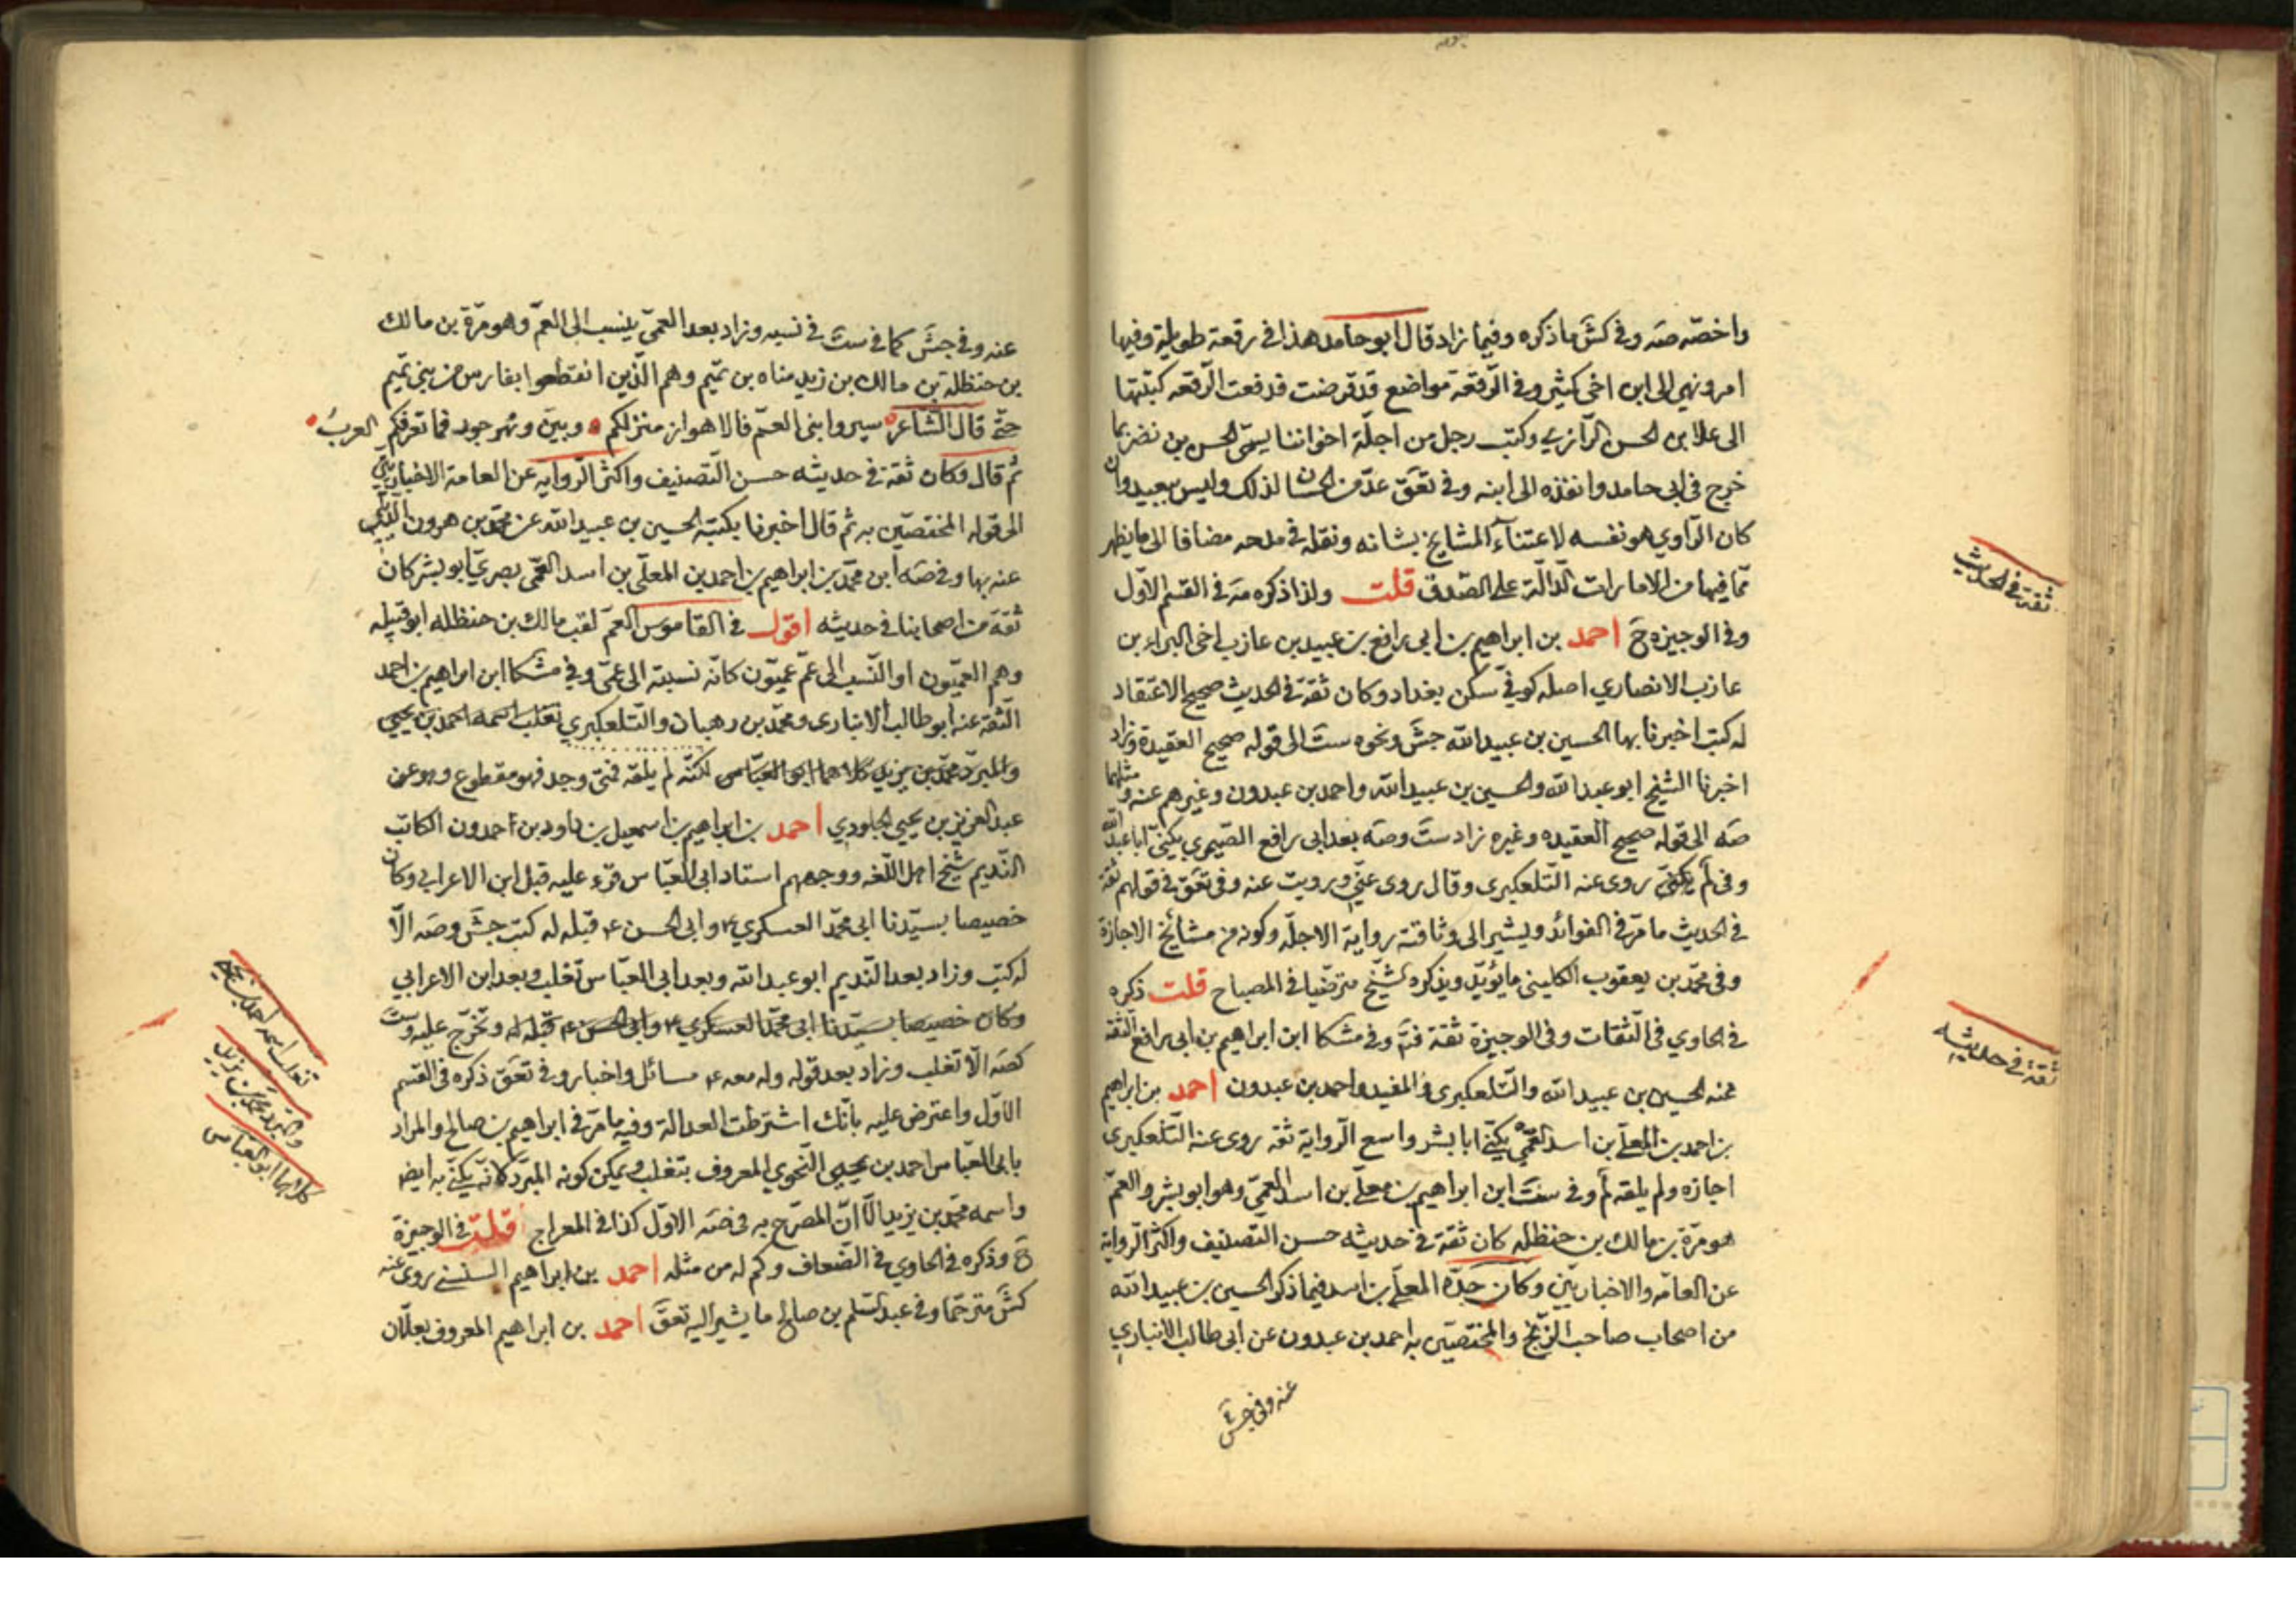 واخصّه صَه وفي كشَ ما ذكره وفيما زاد قال ابو حامد هذا في رقعة طويلة وفيها
امر ونهي الى ابن اخي كثير وفي الرّقعة مواضع قد قرضت فدفعت الرّقعه كهيئتها
الى علا بن الحسن الرّازي وكتب رجل من اجلّة اخواننا يسمّى الحسن بن نضر بما
خرج في ابي حامد وانفذه الى ابنه وفي تعَق عدّ من الحسان لذلك وليس ببعيد وان
كان الرّاوي هو نفسه لاعتناء المشايخ بشانه ونقله في مدحه مضافا الى ما يظهر
ممّا فيها من الامارات الدّالّة على الصّدق قلت ولذا ذكره مَه في القسم الاوّل
وفي الوجيزه حَ احمد بن ابراهيم بن ابي رافع بن عبيد بن عازب اخي البراء بن
عازب الانصاري اصله كوفيّ سكن بغداد وكان ثقة في الحديث صحيح الاعتقاد
له كتب اخبرنا بها الحسين بن عبيد الله جشَ ونحوه ستَ الى قوله صحيح العقيدة وزاد
اخبرنا الشيخ ابو عبد الله والحسين بن عبيد الله واحمد بن عبدون وغيرهم عنه ومثلهما
صَه الى قوله صحيح العقيده وغيره زاد ستَ وصَه بعد ابي رافع الصّيمري يكنّى ابا عبد الله
وفي لم يكنّى روى عنه التّلعكبري وقال روى عنّي ورويت عنه وفي تعَق في قولهم ثقة
في الحديث ما مرّ في الفوائد ويشير الى وثاقته رواية الاجلّه وكونه من مشائخ الاجازة
وفي محمّد بن يعقوب الكليني ما يؤيّد ويذكره الشّيخ مترضّيا في المصباح قلت ذكره
في الحاوي في الثّقات وفي الوجيزة ثقة فتَم وفي مشكا ابن ابراهيم بن ابي رافع الثقة
عنه الحسين بن عبيد الله والتّلعكبري والمفيد واحمد بن عبدون احمد بن ابراهيم
بن احمد بن المعلّى بن اسد العمّي يكنّى ابا بشر واسع الرّواية ثقه روى عنه التّلعكبري
اجازه ولم يلقه لم وفي ستَ ابن ابراهيم بن معلّى بن اسد العمّيّ وهو ابو بشر والعمّ
هو مرّة بن مالك بن حنظله كان ثقة في حديثه حسن التّصنيف واكثر الرّواية
عن العامّه والاخباريّين وكان جدّه المعلّى بن اسد فيما ذكر الحسين بن عبيد الله
من اصحاب صاحب الزّنج والمختصّين به احمد بن عبدون عن ابي طالب الانباري
عنه وفي جشَ
ثقة في الحديث
ثقة في حديثه
عنه وفي جشَ كما في ستَ في نسبه وزاد بعد العمّيّ ينسب الى العمّ وهو مرّة بن مالك
بن حنظلة بن مالك بن زيد مناه بن تميم وهم الّذين انقطعوا بفارس من بني تميم
حتّى قال الشّاعر سيروا بني العمّ فالاهواز منزلكم وبيرى ونهر جود فما تعرفكم العرب
ثم قال وكان ثقة في حديثه حسن التّصنيف واكثر الرّوايه عن العامة الاخباريين
الى قوله المختصّين به ثم قال اخبرنا بكتبه الحسين بن عبيد الله عن محمّد بن هرون
عنه بها وفي ضَه ابن محمّد بن ابراهيم بن احمد بن المعلّى بن اسد العمّي بصريّ ابو بشر كان
ثقة من اصحابنا في حديثه اقول في القاموس العمّ لقب مالك بن حنظله ابو قبيله
وهم العميّون او النّسب الى عمّ عميّون كانّه نسبته الى عمّى وفي مشكا ابن ابراهيم بن احمد
الثّقة عنه ابو طالب الانباري ومحمّد بن رهبان والتّلعكبري تغلب اسمه احمد بن يحيى
والمبرّد محمّد بن يزيد كلاهما ابو العبّاس لكنّه لم يلقه فمتى وجد فهو مقطوع وهو عن
عبد العزيز بن يحيى الجلودي احمد بن ابراهيم بن اسمعيل بن داود بن احمدون الكاتب
النّديم شيخ اهل اللّغه ووجههم استاد ابي العبّاس قرء عليه قبل ابن الاعرابي وكان
خصيصا بسيّدنا ابي محمّد العسكري ع وابي الحسن ع قبله له كتب جشَ وصَه الّا
له كتب وزاد بعد النّديم ابو عبد الله وبعد ابي العبّاس تغلب وبعد ابن الاعرابي
وكان خصيصا بسيّدنا ابي محمّد العسكري ع وابي الحسن ع قبله له وتخرّج عليه وستَ
كصَه الّا تغلب وزاد بعد قوله وله معه ع مسائل واخبار وفي تعَق ذكره في القسم
الاوّل واعترض عليه بانّك اشترطت العدالة وفيه ما مرّ في ابراهيم بن صالح والمراد
بابي العبّاس احمد بن يحيى النّحوي المعروف بتغلب ويمكن كونه المبرّد كانّه يكنّى به ايضا
واسمه محمّد بن يزيد الّا انّ المصرّح به في ضَه الاوّل كذا في المعراج قلت في الوجيزة
حَ وذكره في الحاوي في الضّعاف وكم له من مثله احمد بن ابراهيم السنسني روى عنه
كشَ مترحّما وفي عبد السّلم بن صالح ما يشير اليه تعَق احمد بن ابراهيم المعروف بعلّان
تغلب اسمه احمد بن يحيى
والمبرّد محمّد بن يزيد
كلاهما ابو العبّاس